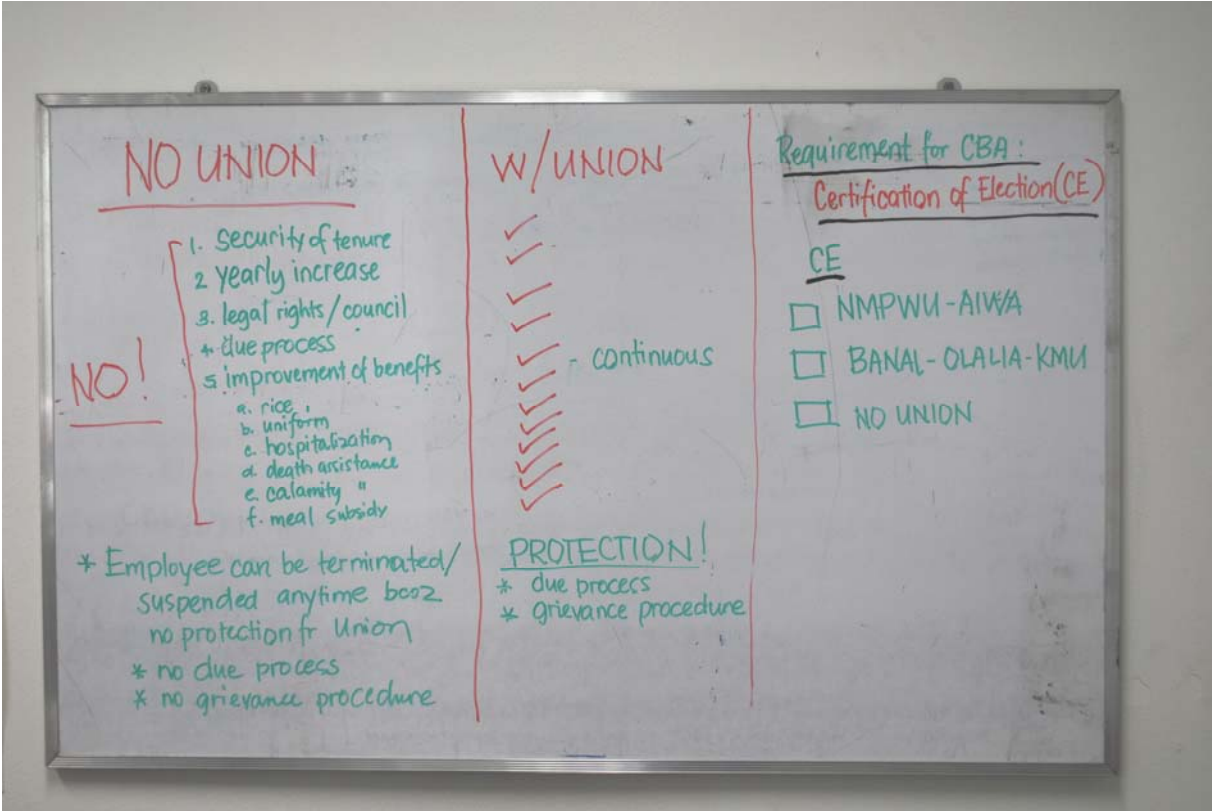 NO UNION
NO!
1. Security of tenure
2 yearly increase
3. legal rights/council
4. due process
5 improvement of benefits
a. rice
b. uniform
c. hospitalization
d. death assistance
e. calamity "
f. meal subsidy
* Employee can be terminated/
suspended anytime bcoz
no protection fr Union
* no due process
* no grievance procedure
W/UNION
- continuous
PROTECTION!
* due process
* grievance procedure
Requirement for CBA:
Certification of Election(CE)
CE
NMPWU-AIWA
BANAL-OLALIA-KMU
NO UNION